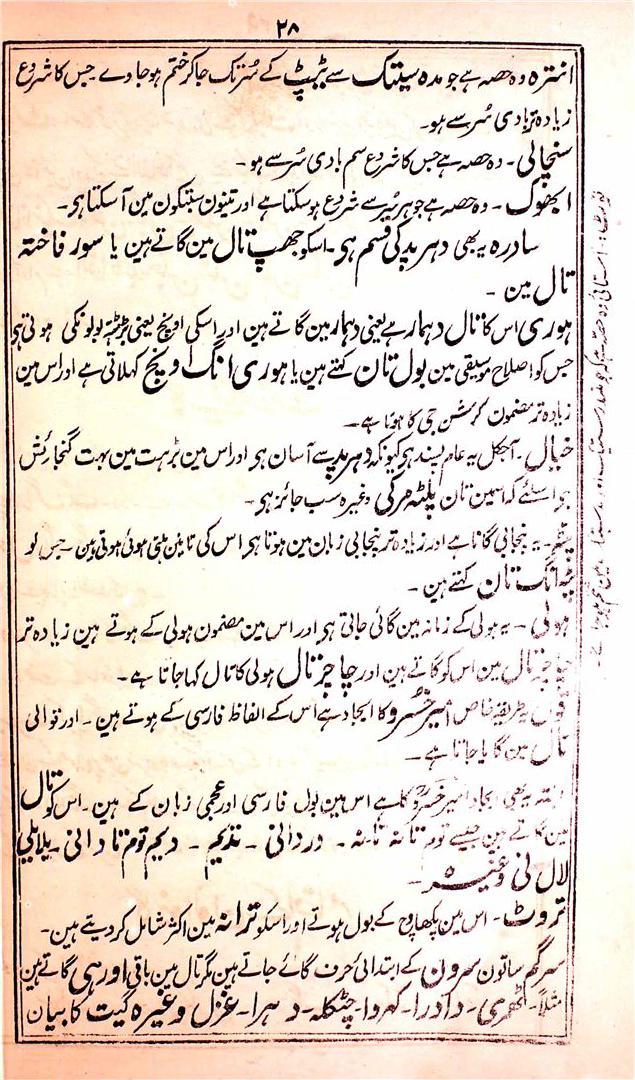 ۲۸
انترہ وہ حصہ ہے جو مدہ سپتک سے ٹیپ کے سُر تک جا کر ختم ہو جاوے جس کا شروع
زیادہ تر بادی سُر سے ہو۔
سنچائی۔ وہ حصہ ہے جس کا شروع سم بادی سُر سے ہو۔
ابھوگ۔ وہ حصہ ہے جو ہر سُر سے شروع ہو سکتا ہے اور تینون سپتکون مین آ سکتا ہی۔
سادرہ یہ بھی دہرپد کی قسم ہی۔ اسکو جھپ تال مین گاتے ہین یا سور فاختہ
تال مین۔
ہوری اس کا تال دہمار ہے یعنی دہمار مین گاتے ہین اور اسکی اوپچ یعنی بڑہت بولونکی ہوتی ہی
جس کو اصلاح موسیقی مین بول تان کہتے ہین یا ہوری انگ اوپچ کہلاتی ہے اور اس مین
زیادہ تر مضمون کرشن جی کا ہوتا ہے۔
خیال۔ آجکل یہ عام پسند ہی کیونکہ دہرپد سے آسان ہی اور اس مین بڑہت مین بہت گنجائش
ہی اسلئے کہ اسمین تان پلٹہ مرکی وغیرہ سب جائز ہی۔
ٹپہ۔ یہ پنجابی گانا ہے اور زیادہ تر پنجابی زبان مین ہوتا ہی اس کی تانین بٹی ہوئی ہوتی ہین۔ جس کو
ٹپہ انگ تان کہتے ہین۔
ہولی۔ یہ ہولی کے زمانہ مین گائی جاتی ہی اور اس مین مضمون ہولی کے ہوتے ہین زیادہ تر
چاچر تال مین اس کو گاتے ہین اور چاچر تال ہولی کا تال کہا جاتا ہے۔
طریقہ خاص امیر خسرو کا ایجاد ہے اس کے الفاظ فارسی کے ہوتے ہین۔ اور قوالی
تال مین گایا جاتا ہے۔
یہ بھی ایجاد امیر خسرو کا ہے اس مین بول فارسی اور عجمی زبان کے ہین۔ اس کو تال
مین گاتے ہین جیسے توم تانہ تانہ۔ دردانی۔ ندیم۔ دیم توم تا دانی۔ یلایلی
لال نی وغیرہ۔
تروٹ۔ اس مین پکھاوج کے بول ہوتے اور اسکو ترانہ مین اکثر شامل کر دیتے ہین۔
سرگم ساتون سرون کے ابتدائی حرف گائے جاتے ہین مگر تال مین باقی اور ہی گاتے ہین
مثلاً۔ ٹھمری۔ دادرا۔ کہروا۔ چٹکلہ۔ دہرا۔ غزل وغیرہ گیت کا بیان